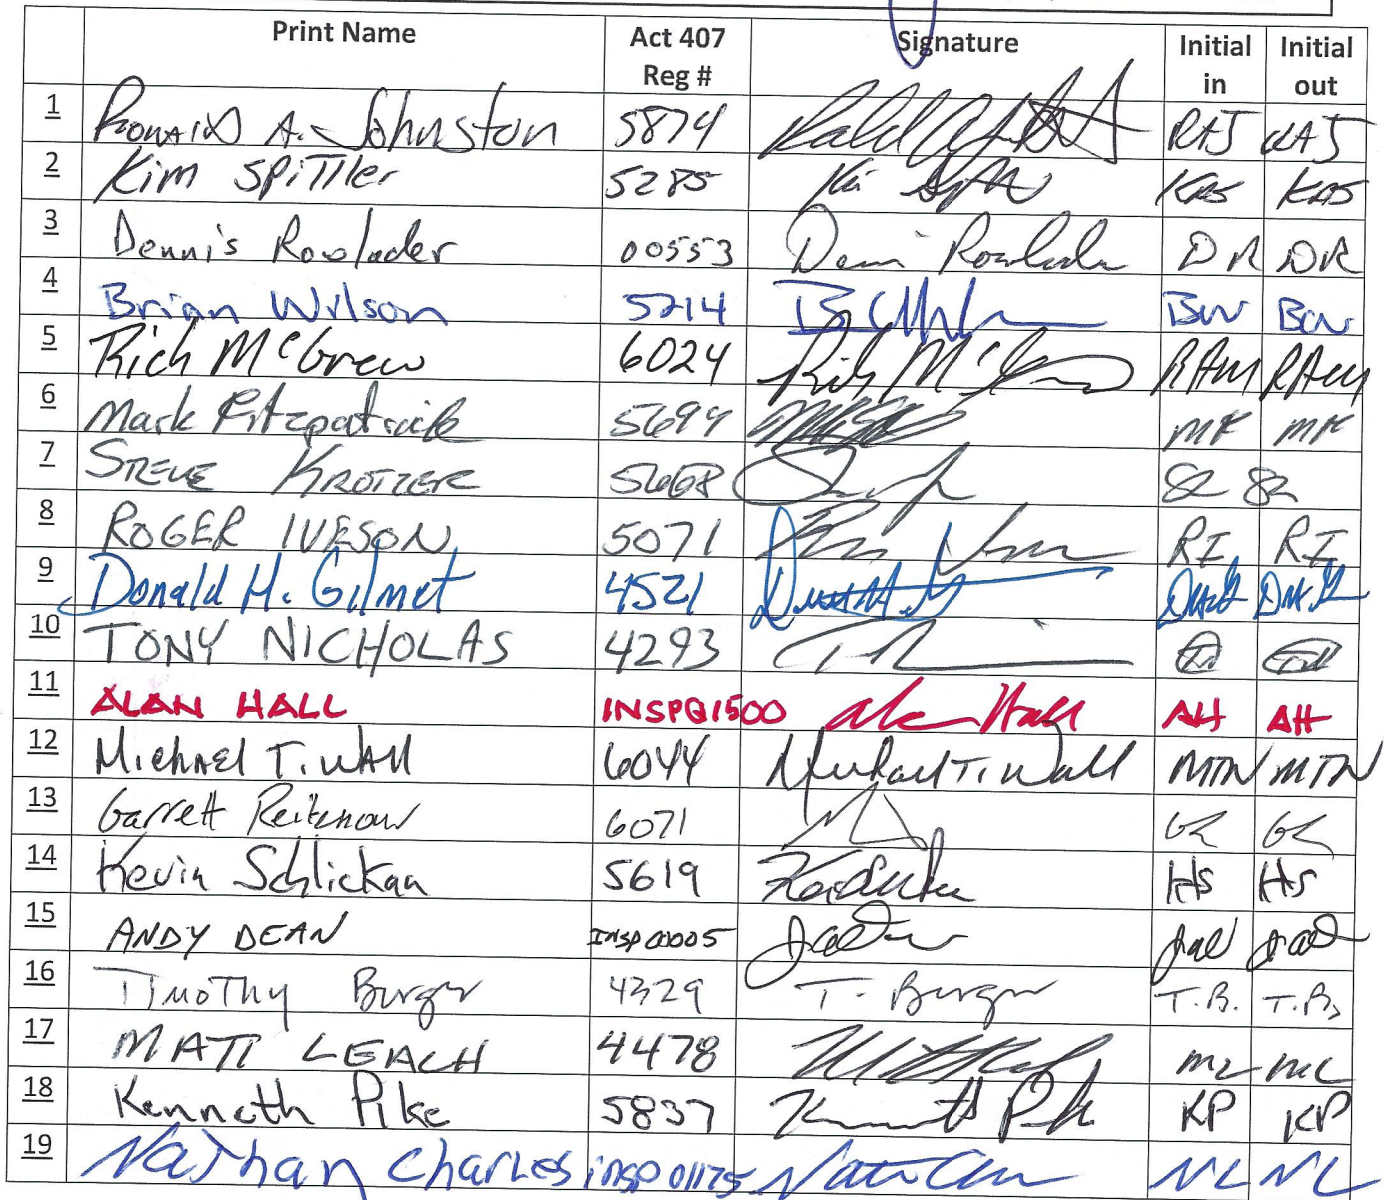 Print Name Act 407 Reg # Signature Initial in Initial out
1 Ronald A. Johnston 5874 RAJ RAJ
2 Kim Spittler 5285 KAS KAS
3 Dennis Rowlader 00553 DR DR
4 Brian Wilson 5214 BW BW
5 Rich McGrew 6024 Rich McGrew RAM RAM
6 Mark Fitzpatrick 5694 MF MF
7 STEVE KROTZER 5668 SK SK
8 ROGER IVESON 5071 RI RI
9 Donald H. Gilmet 4521 DHG DHG
10 TONY NICHOLAS 4293
11 ALAN HALL INSPQ1500 Alan Hall AH AH
12 Michael T. Wall 6044 Michael T. Wall MTW MTW
13 Garrett Reitenour 6071 GR GR
14 Kevin Schlickan 5619 HS HS
15 ANDY DEAN INSP00005
16 Timothy Burger 4329 T. Burger T.B. T.B.
17 MATT LEACH 4478 ML ML
18 Kenneth Pike 5837 Kenneth Pike KP KP
19 Nathan Charles insp01175 NC NC